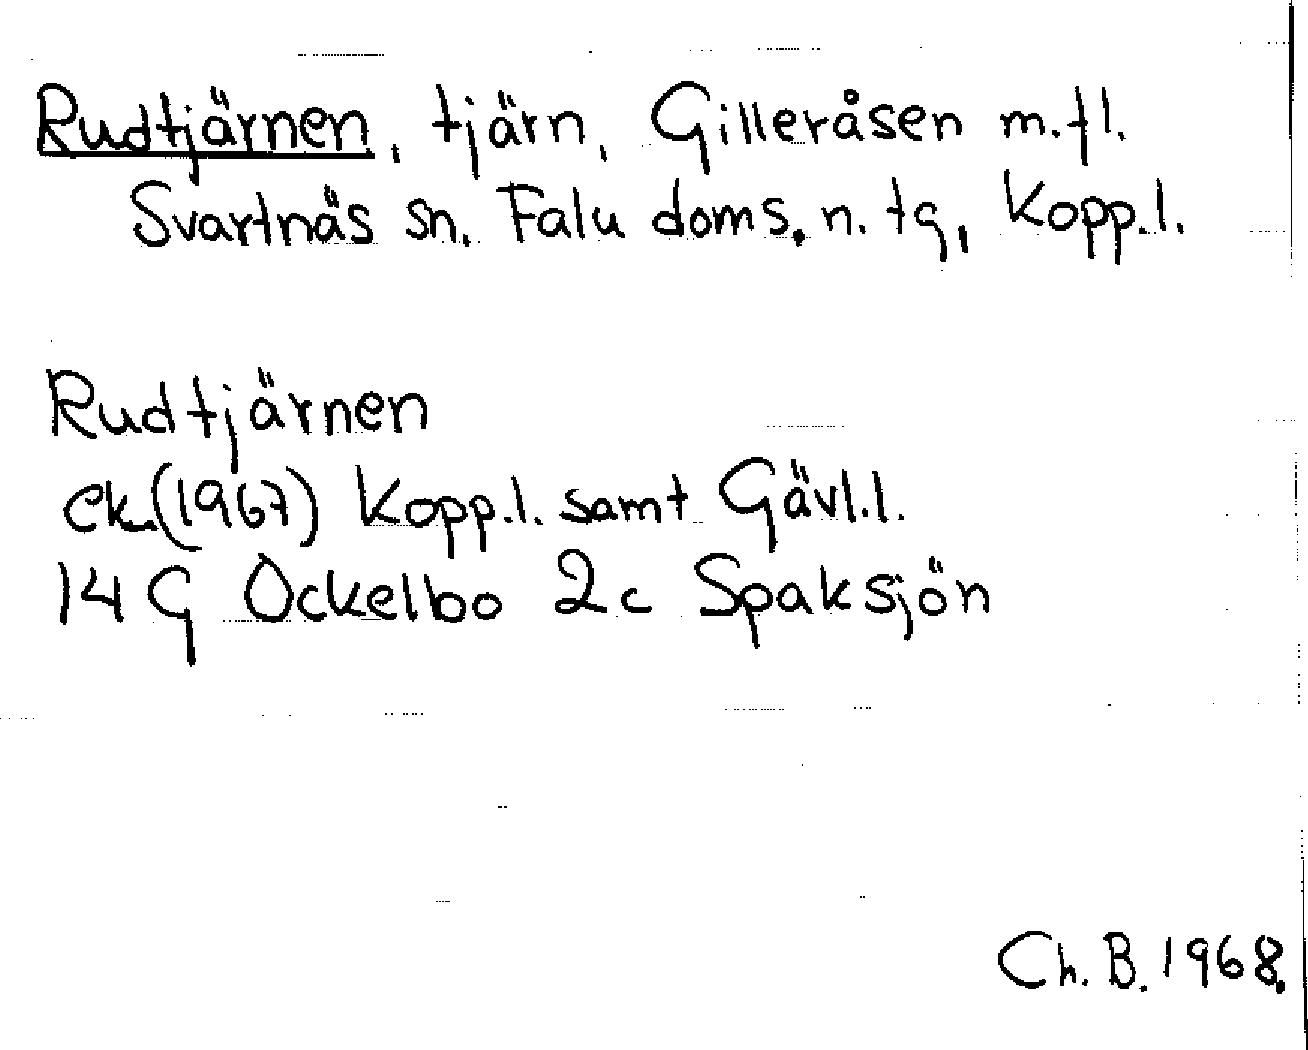 Rudtjärnen, tjärn, Gilleråsen m.fl.
Svartnäs sn. Falu doms. n. tg, Kopp.l.
Rudtjärnen
ek.(1967) Kopp.l. samt Gävl.l.
14 G Ockelbo 2c Spaksjön
Ch. B. 1968.